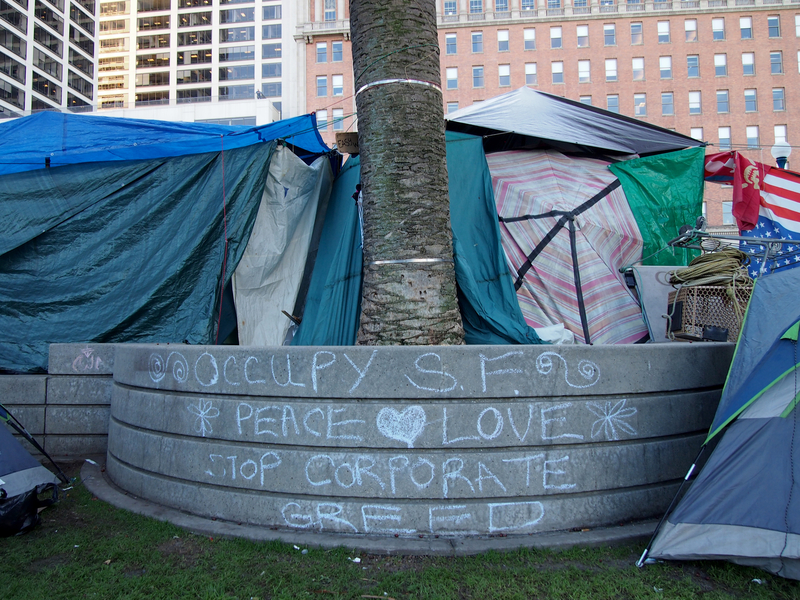 OCCUPY S.F.
PEACE LOVE
STOP CORPORATE
GREED